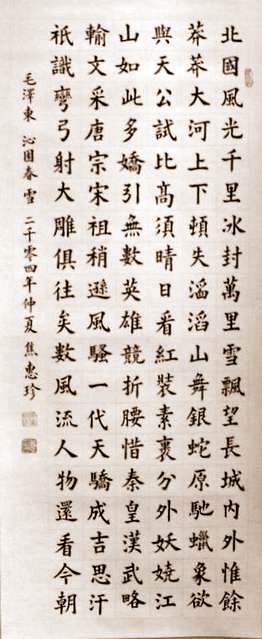 北國風光千里冰封萬里雪飄望長城內外惟餘
莽莽大河上下頓失滔滔山舞銀蛇原馳蠟象欲
與天公試比高須晴日看紅裝素裹分外妖嬈江
山如此多嬌引無數英雄競折腰惜秦皇漢武略
輸文采唐宗宋祖稍遜風騷一代天驕成吉思汗
祇識彎弓射大雕俱往矣數風流人物還看今朝
毛澤東 沁園春 雪 二千零四年仲夏 焦惠珍